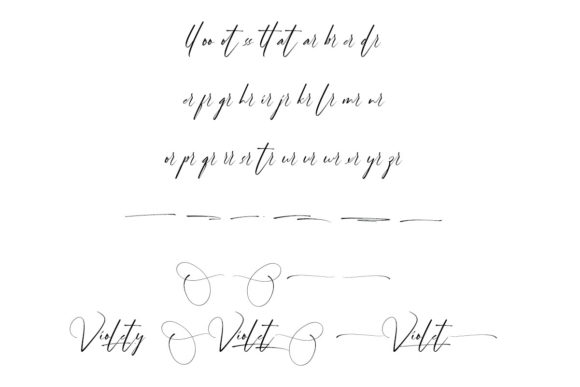 ll oo ot ss tt at ar br er dr
er fr gr hr ir jr kr lr mr nr
or pr qr rr sr tr ur vr wr xr yr zr
Violety Violet Violet